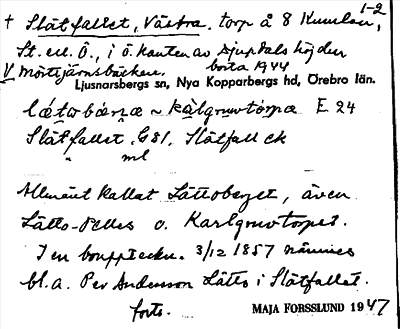 1-2
+ Slätfallet, Västra. torp å 8 Kumlan,
St. ell. Ö., i ö. kanten av Djupdalshöjden
V Mörttjärnsbäcken. borta 1944
Ljusnarsbergs sn, Nya Kopparbergs hd, Örebro län.
E 24
Slätfallet G 81, Slätfall ek
ml
Allmänt kallat Låttoberget, även
Låtto-Pelles o. Karlgruvtorpet.
I en bouppteckn. 3/12 1857 nämnes
bl.a. Per Andersson Låtts i Slätfallet.
forts.
MAJA FORSSLUND 1947